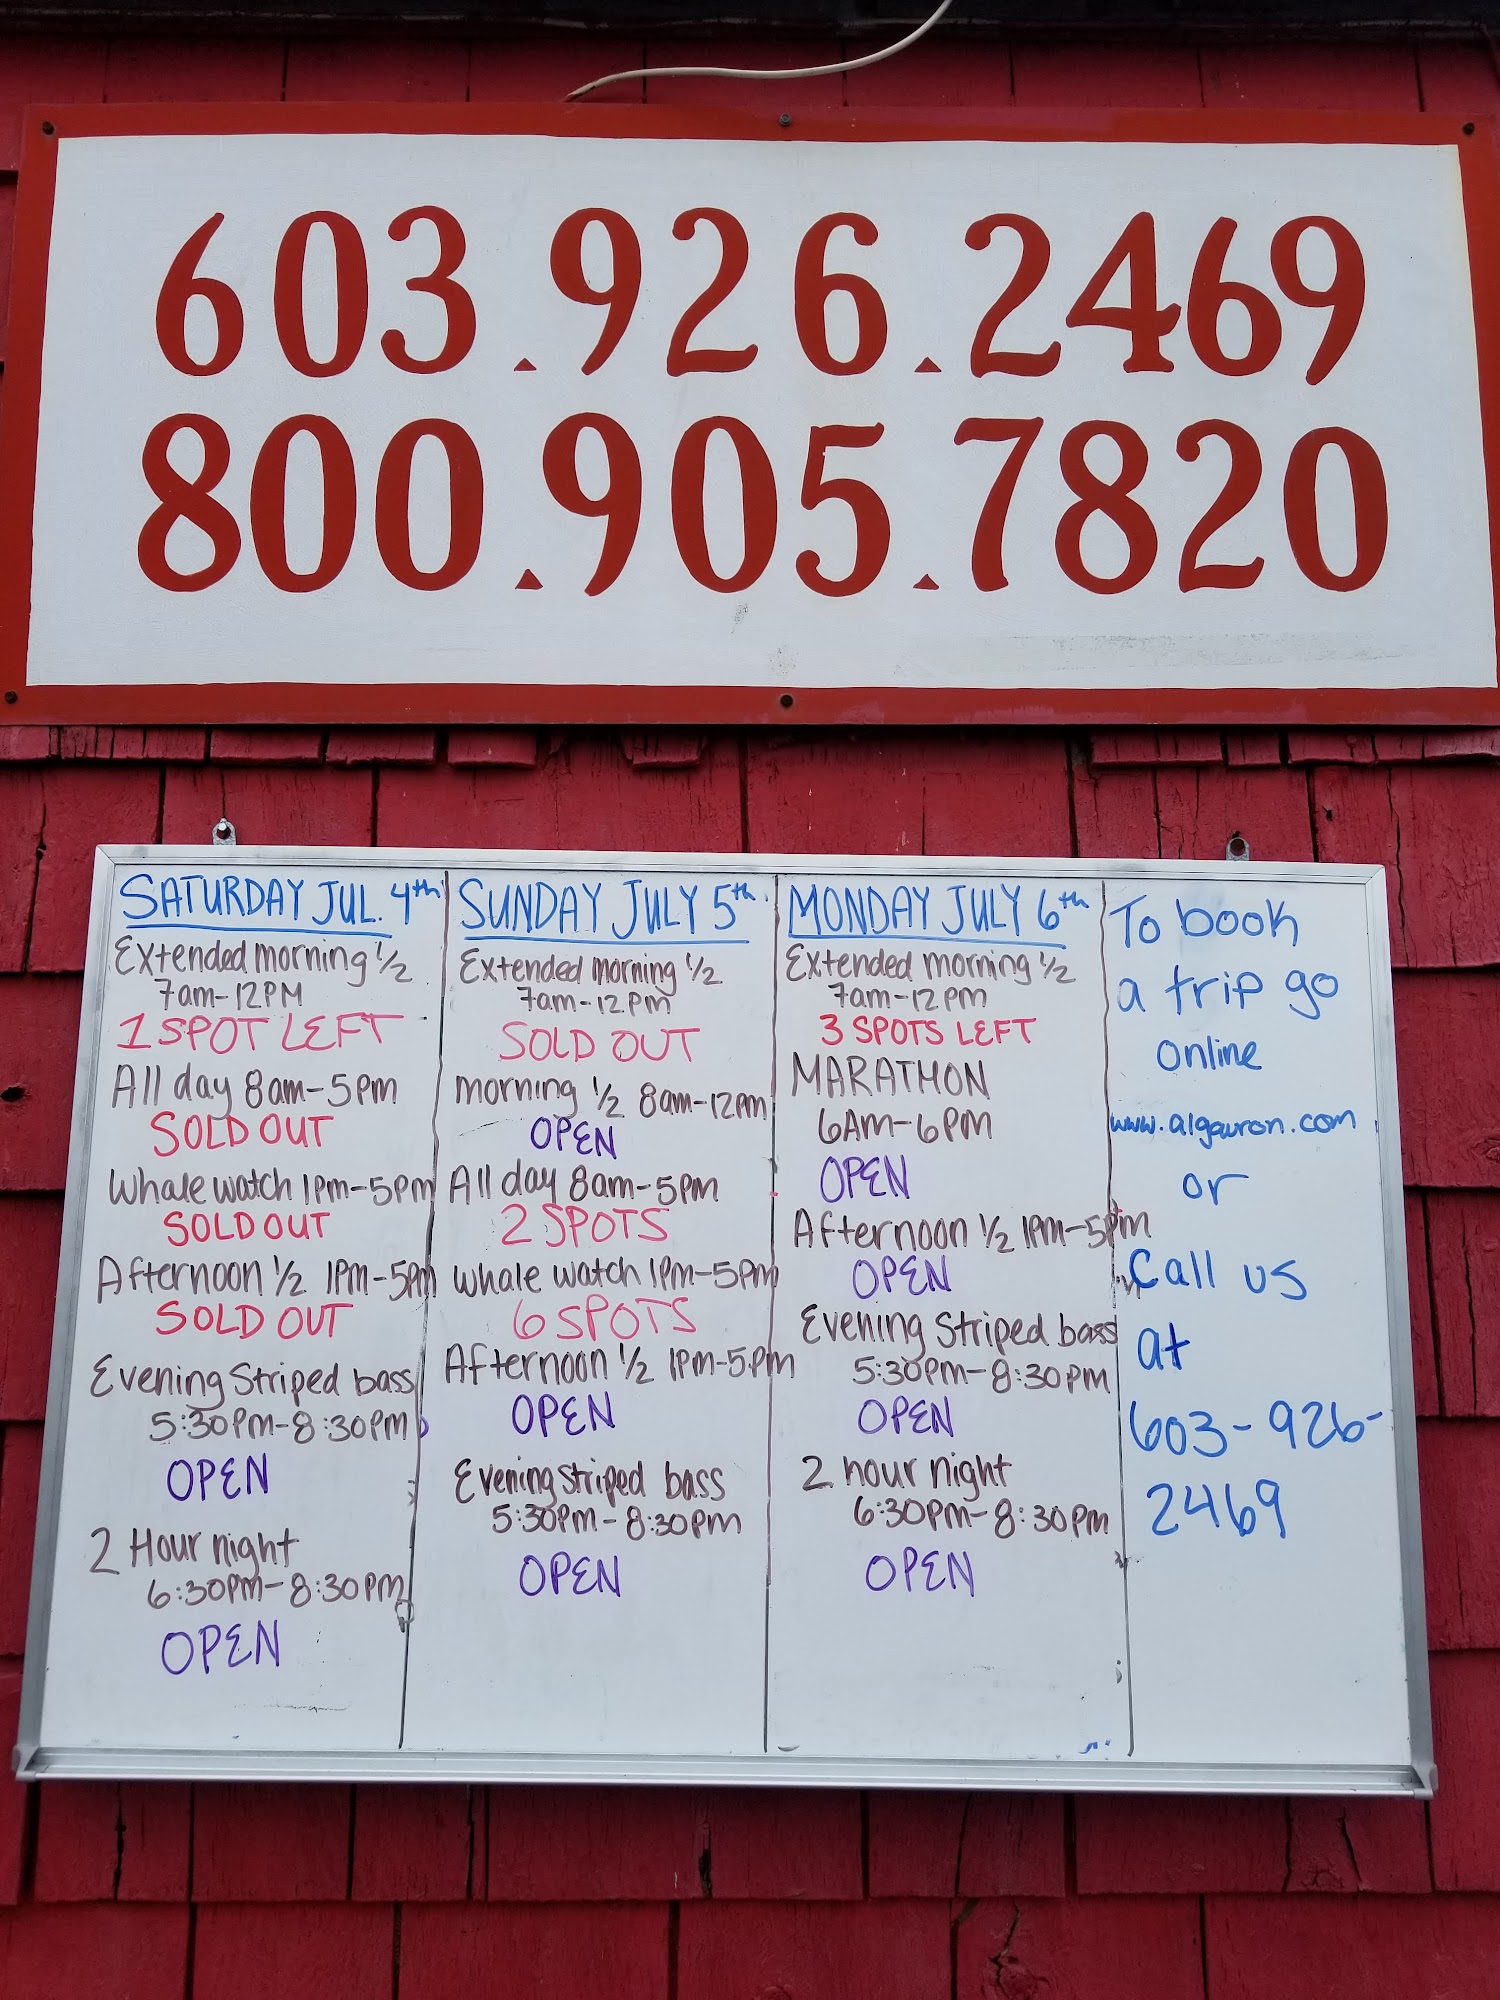 603.926.2469
800.905.7820
SATURDAY JUL. 4th
Extended morning 1/2
7am-12PM
1 SPOT LEFT
All day 8am-5pm
SOLD OUT
Whale watch 1pm-5pm
SOLD OUT
Afternoon 1/2 1pm-5pm
SOLD OUT
Evening Striped bass
5:30pm-8:30pm
OPEN
2 Hour night
6:30pm-8:30pm
OPEN
SUNDAY JULY 5th
Extended morning 1/2
7am-12pm
SOLD OUT
morning 1/2 8am-12pm
OPEN
All day 8am-5pm
2 SPOTS
Whale watch 1pm-5pm
6 SPOTS
Afternoon 1/2 1pm-5pm
OPEN
Evening striped bass
5:30pm-8:30pm
OPEN
MONDAY JULY 6th
Extended morning 1/2
7am-12pm
3 SPOTS LEFT
MARATHON
6AM-6PM
OPEN
Afternoon 1/2 1pm-5pm
OPEN
Evening Striped bass
5:30pm-8:30pm
OPEN
2 hour night
6:30pm-8:30pm
OPEN
To book
a trip go
online
www.algauron.com
or
Call us
at
603-926-
2469